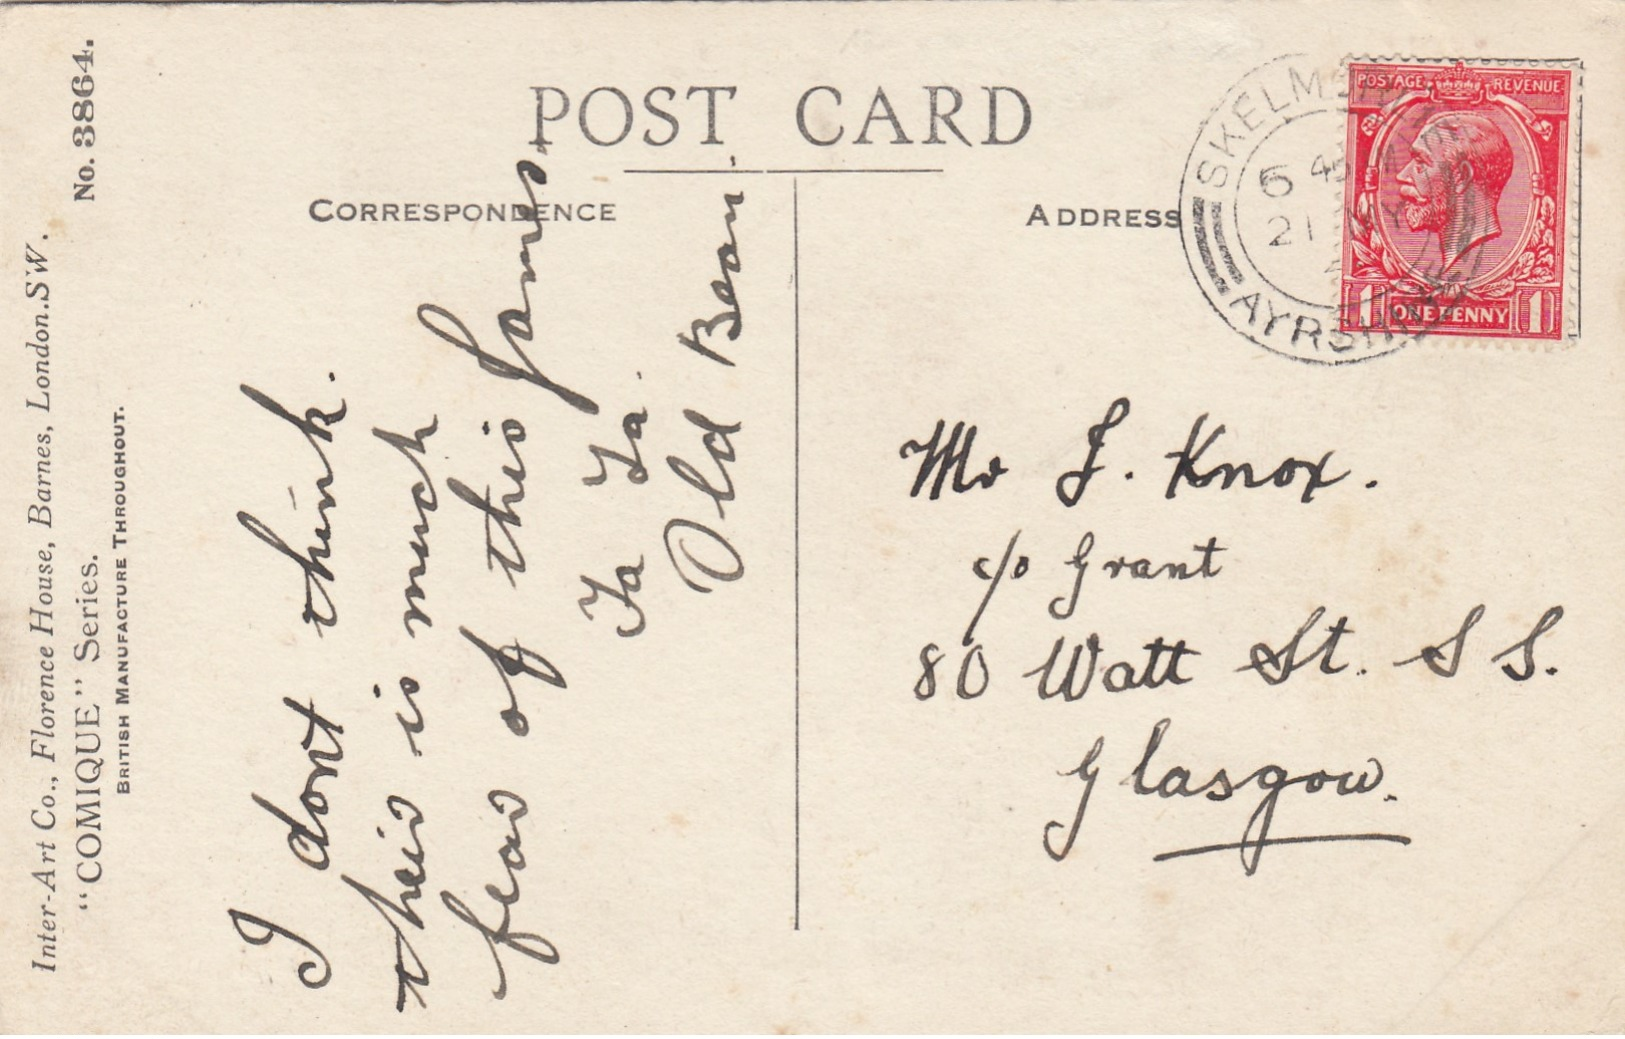 POST CARD
CORRESPONDENCE
ADDRESS
No. 3864.
Inter-Art Co., Florence House, Barnes, London.S.W.
"COMIQUE" Series.
BRITISH MANUFACTURE THROUGHOUT.
I dont think.
their is much
fear of this James.
Ta Ta.
Old Bean.
Mr J. Knox.
c/o Grant
80 Watt St. S S.
Glasgow.
POSTAGE REVENUE
1 ONE PENNY 1
6 45
21 MY
AYRSHIRE